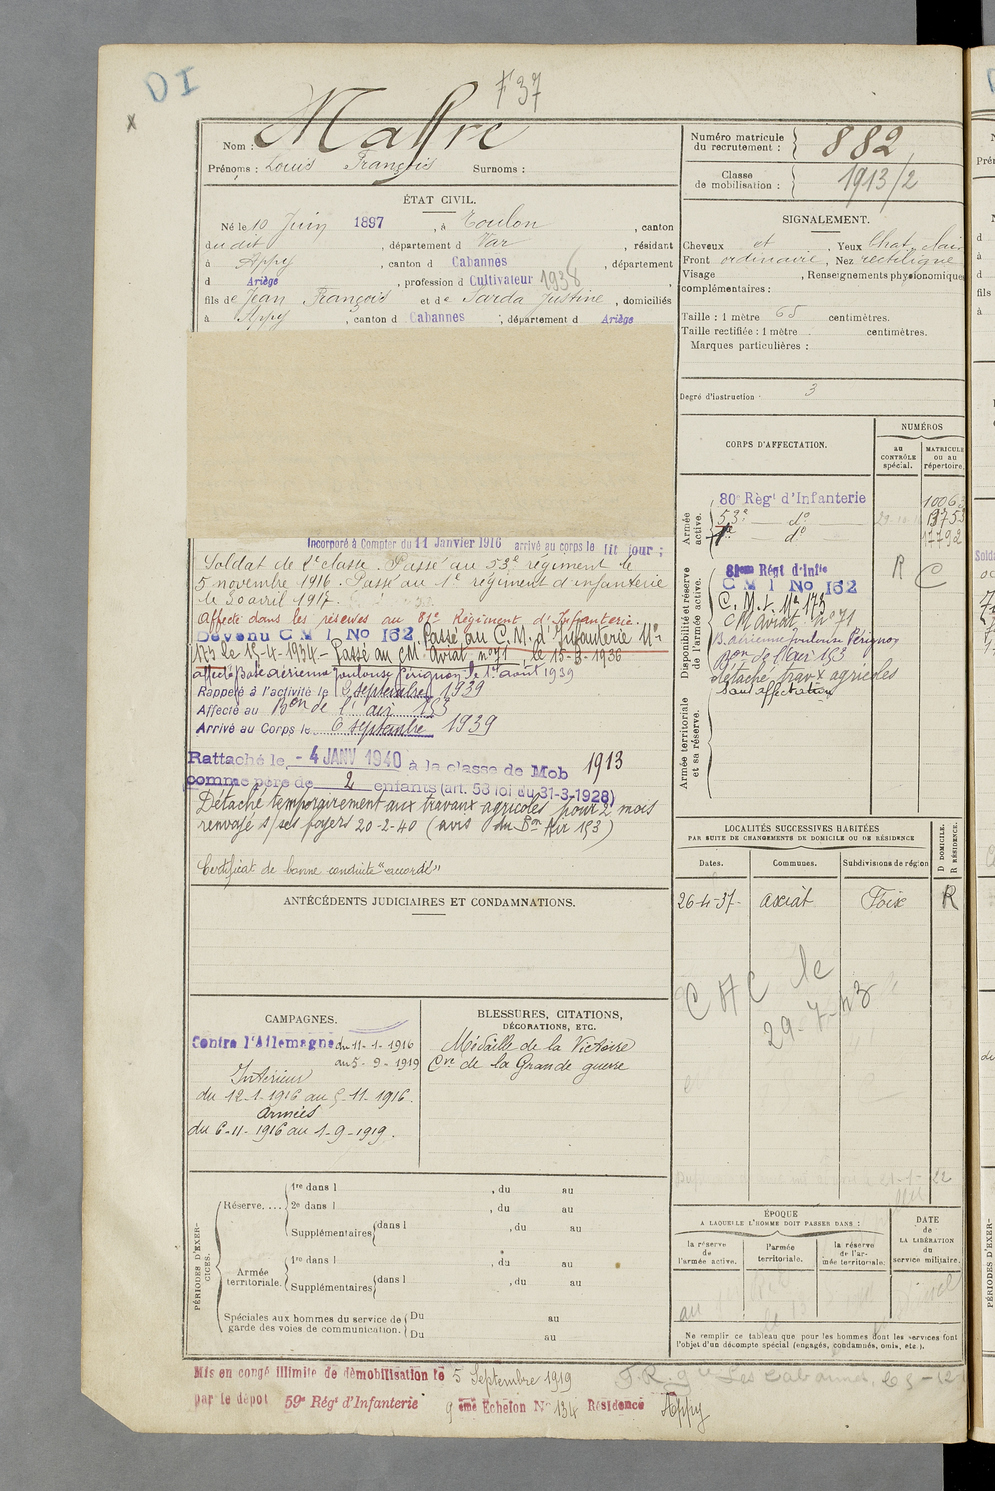 DI
F 37
x
Nom : Maffre
Prénoms : Louis François Surnoms :
Numéro matricule du recrutement : 882
Classe de mobilisation : 1913/2
ÉTAT CIVIL.
Né le 10 Juin 1897, à Toulon, canton
dudit, département d Var, résidant
à Appy, canton d Cabannes, département
d Ariège, profession d Cultivateur 1938,
fils de Jean François et de Sarda Justine, domiciliés
à Appy, canton d Cabannes, département d Ariège
SIGNALEMENT.
Cheveux et, Yeux Chat. clair
Front ordinaire, Nez rectiligne
Visage , Renseignements physionomiques
complémentaires :
Taille : 1 mètre 65 centimètres.
Taille rectifiée : 1 mètre centimètres.
Marques particulières :
Degré d'instruction 3
CORPS D'AFFECTATION.
NUMÉROS
au CONTRÔLE spécial.
MATRICULE ou au répertoire.
Armée active.
80e Régt d'Infanterie
53e — do
1er do
17792
Disponibilité et réserve de l'armée active.
81eme Régt d'Infie R C
C M I No 162
C. M. I. No 173
CM Aviat. no 71
B. aérienne Toulouse Pérignon
Bon de l'air 153
détaché travx agricoles
sans affectation
Armée territoriale et sa réserve.
Incorporé à Compter du 11 Janvier 1916 arrivé au corps le dit jour ;
Soldat de 2e classe. Passé au 53e régiment le
5 novembre 1916. Passé au 1er régiment d'infanterie
le 30 avril 1917.
Affecté dans les réserves au 81e Régiment d'Infanterie.
Devenu C M I No 162 Passé au C. M. d'Infanterie No
173 le 15-4-1934 - Passé au CM. Aviat no 71, le 15-3-1936
affecté Base aérienne Toulouse Pérignon le 1er août 1939
Rappelé à l'activité le 6 septembre 1939
Affecté au Bon de l'air 153
Arrivé au Corps le 6 septembre 1939
Rattaché le - 4 JANV 1940 à la classe de Mob 1913
comme père de 2 enfants (art. 58 loi du 31-3-1928)
Détaché temporairement aux travaux agricoles pour 2 mois
renvoyé s/ses foyers 20-2-40 (avis du Bon Air 153)
Certificat de bonne conduite "accordé"
LOCALITÉS SUCCESSIVES HABITÉES
PAR SUITE DE CHANGEMENTS DE DOMICILE OU DE RÉSIDENCE
D DOMICILE. R RÉSIDENCE.
Dates. Communes. Subdivisions de région
26-4-37- axiat Foix R
C A C le
29-7-43
ANTÉCÉDENTS JUDICIAIRES ET CONDAMNATIONS.
CAMPAGNES.
Contre l'Allemagne du 11-1-1916
au 5-9-1919
Intérieur
du 12-1-1916 au 5-11-1916.
Armées
du 6-11-1916 au 1-9-1919.
BLESSURES, CITATIONS,
DÉCORATIONS, ETC.
Médaille de la Victoire
Cve de la Grande guerre
PÉRIODES D'EXERCICES.
Réserve.... 1re dans l , du au
2e dans l , du au
Supplémentaires dans l , du au
Armée territoriale. 1re dans l , du au
Supplémentaires dans l , du au
Spéciales aux hommes du service de garde des voies de communication. Du au
Du au
ÉPOQUE
A LAQUELLE L'HOMME DOIT PASSER DANS :
la réserve de l'armée active.
l'armée territoriale.
la réserve de l'armée territoriale.
DATE de LA LIBÉRATION du service militaire.
Ne remplir ce tableau que pour les hommes dont les services font
l'objet d'un décompte spécial (engagés, condamnés, omis, etc.).
Mis en congé illimité de démobilisation le 5 Septembre 1919
par le dépôt 59e Régt d'Infanterie 9 ème Echelon No 134 Résidence Appy